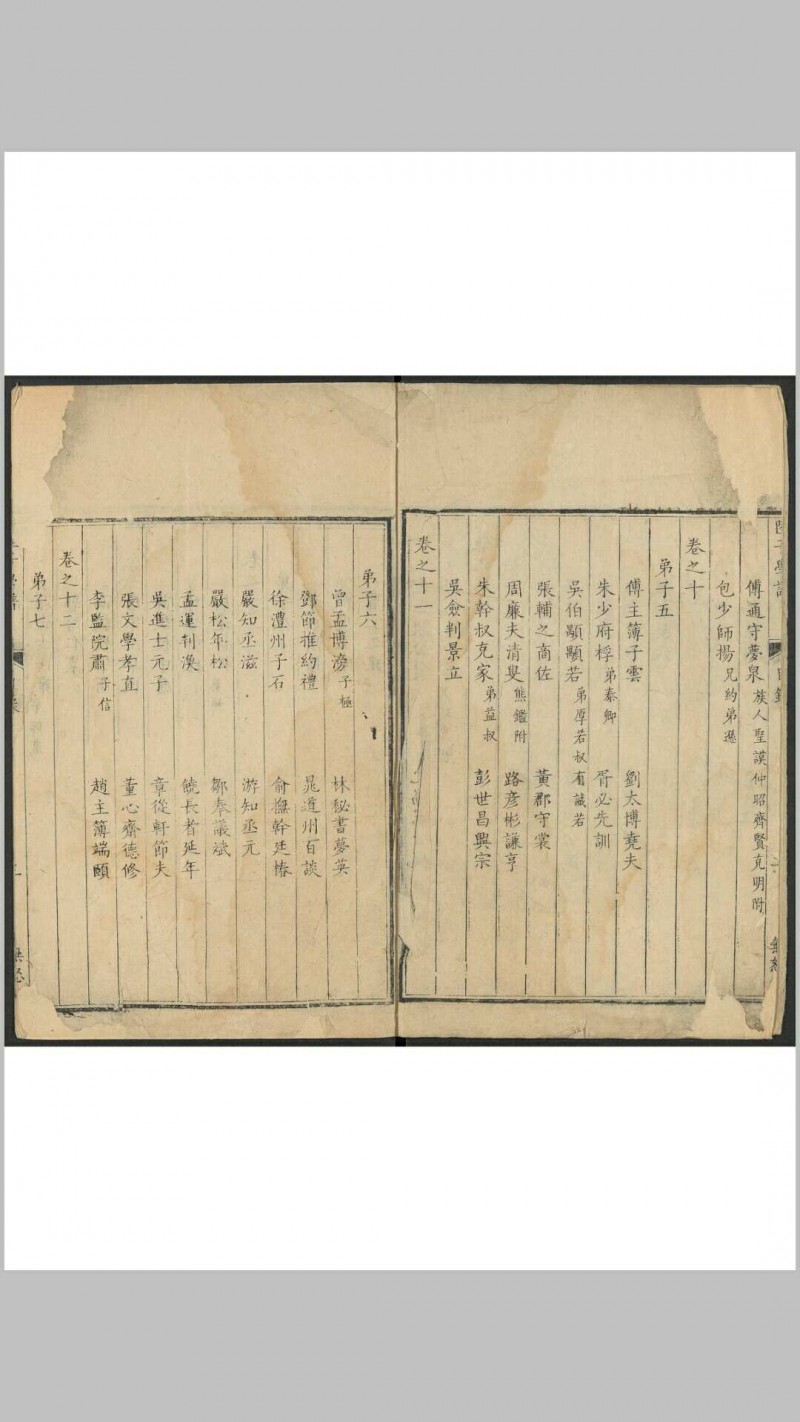 傅通守夢泉 族人聖謨仲昭齊賢克明附
包少師揚 兄約弟遜
卷之十
弟子五
傅主簿子雲 劉太博堯夫
朱少府桴 弟泰卿 胥必先訓
吳伯顒顒若 弟厚若叔有誠若
張輔之商佐 黃郡守裳
周廉夫清叟 熊鑑附 路彥彬謙亨
朱幹叔克家 弟益叔 彭世昌興宗
吳僉判景立
卷之十一
弟子六
曾孟博滂 子極 林秘書夢英
鄧節推約禮 晁道州百談
徐澧州子石 俞撫幹廷椿
嚴知丞滋 游知丞元
嚴松年松 鄒奉議斌
孟運判渙 饒長者延年
吳進士元子 章從軒節夫
張文學孝直 董心齋德修
李監院肅 子信 趙主簿端頤
卷之十二
弟子七